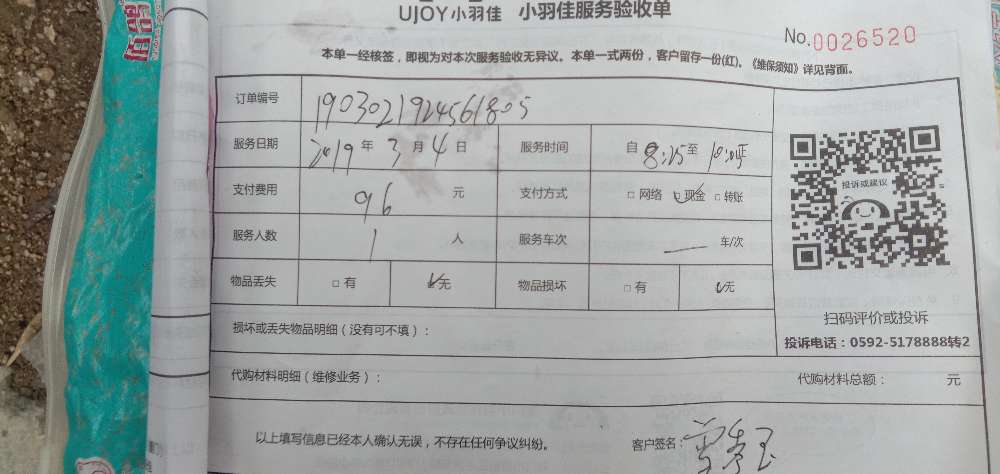 UJOY小羽佳 小羽佳服务验收单
No.0026520
本单一经核签，即视为对本次服务验收无异议。本单一式两份，客户留存一份(红)。《维保须知》详见背面。
订单编号 1903021924561805
服务日期 2019年3月4日 服务时间 自8:25至
支付费用 96 元 支付方式 □网络 ☑现金 □转账
服务人数 1 人 服务车次 — 车/次
物品丢失 □有 ☑无 物品损坏 □有 ☑无
投诉或建议
扫码评价或投诉
投诉电话：0592-5178888转2
损坏或丢失物品明细（没有可不填）：
代购材料明细（维修业务）： 代购材料总额： 元
以上填写信息已经本人确认无误，不存在任何争议纠纷。 客户签名：